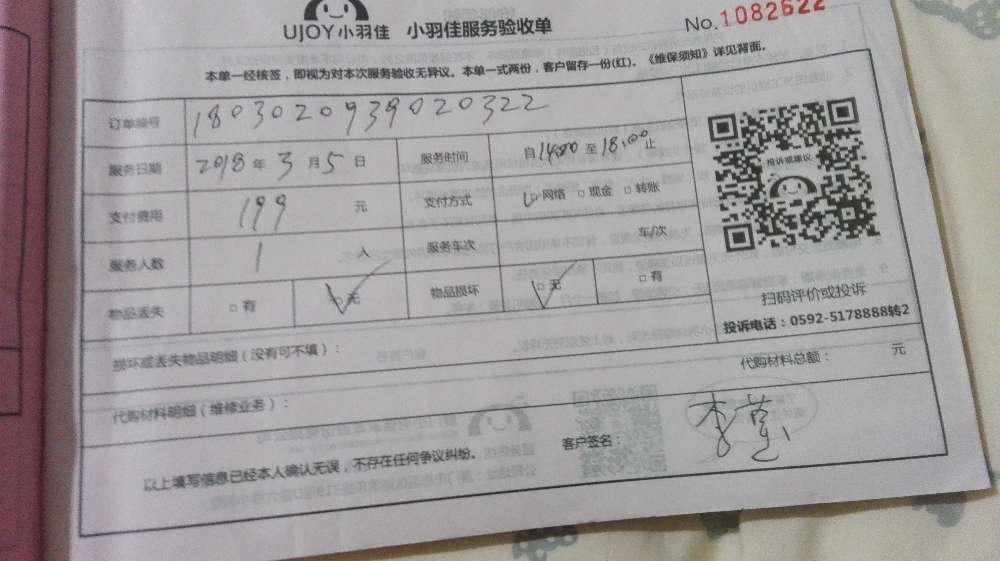 UJOY小羽佳 小羽佳服务验收单 No.1082622
本单一经核签，即视为对本次服务验收无异议。本单一式两份，客户留存一份(红)。《维保须知》详见背面。
订单编号 180302093902032​2
服务日期 2018年3月5日 服务时间 自14:00至18:00止
支付费用 199 元 支付方式 □网络 □现金 □转账
服务人数 1 人 服务车次 车/次
物品丢失 □有 □无 物品损坏 □无 □有
投诉或建议
扫码评价或投诉
投诉电话：0592-5178888转2
损坏或丢失物品明细（没有可不填）：
代购材料明细（维修业务）： 代购材料总额： 元
以上填写信息已经本人确认无误，不存在任何争议纠纷。 客户签名：